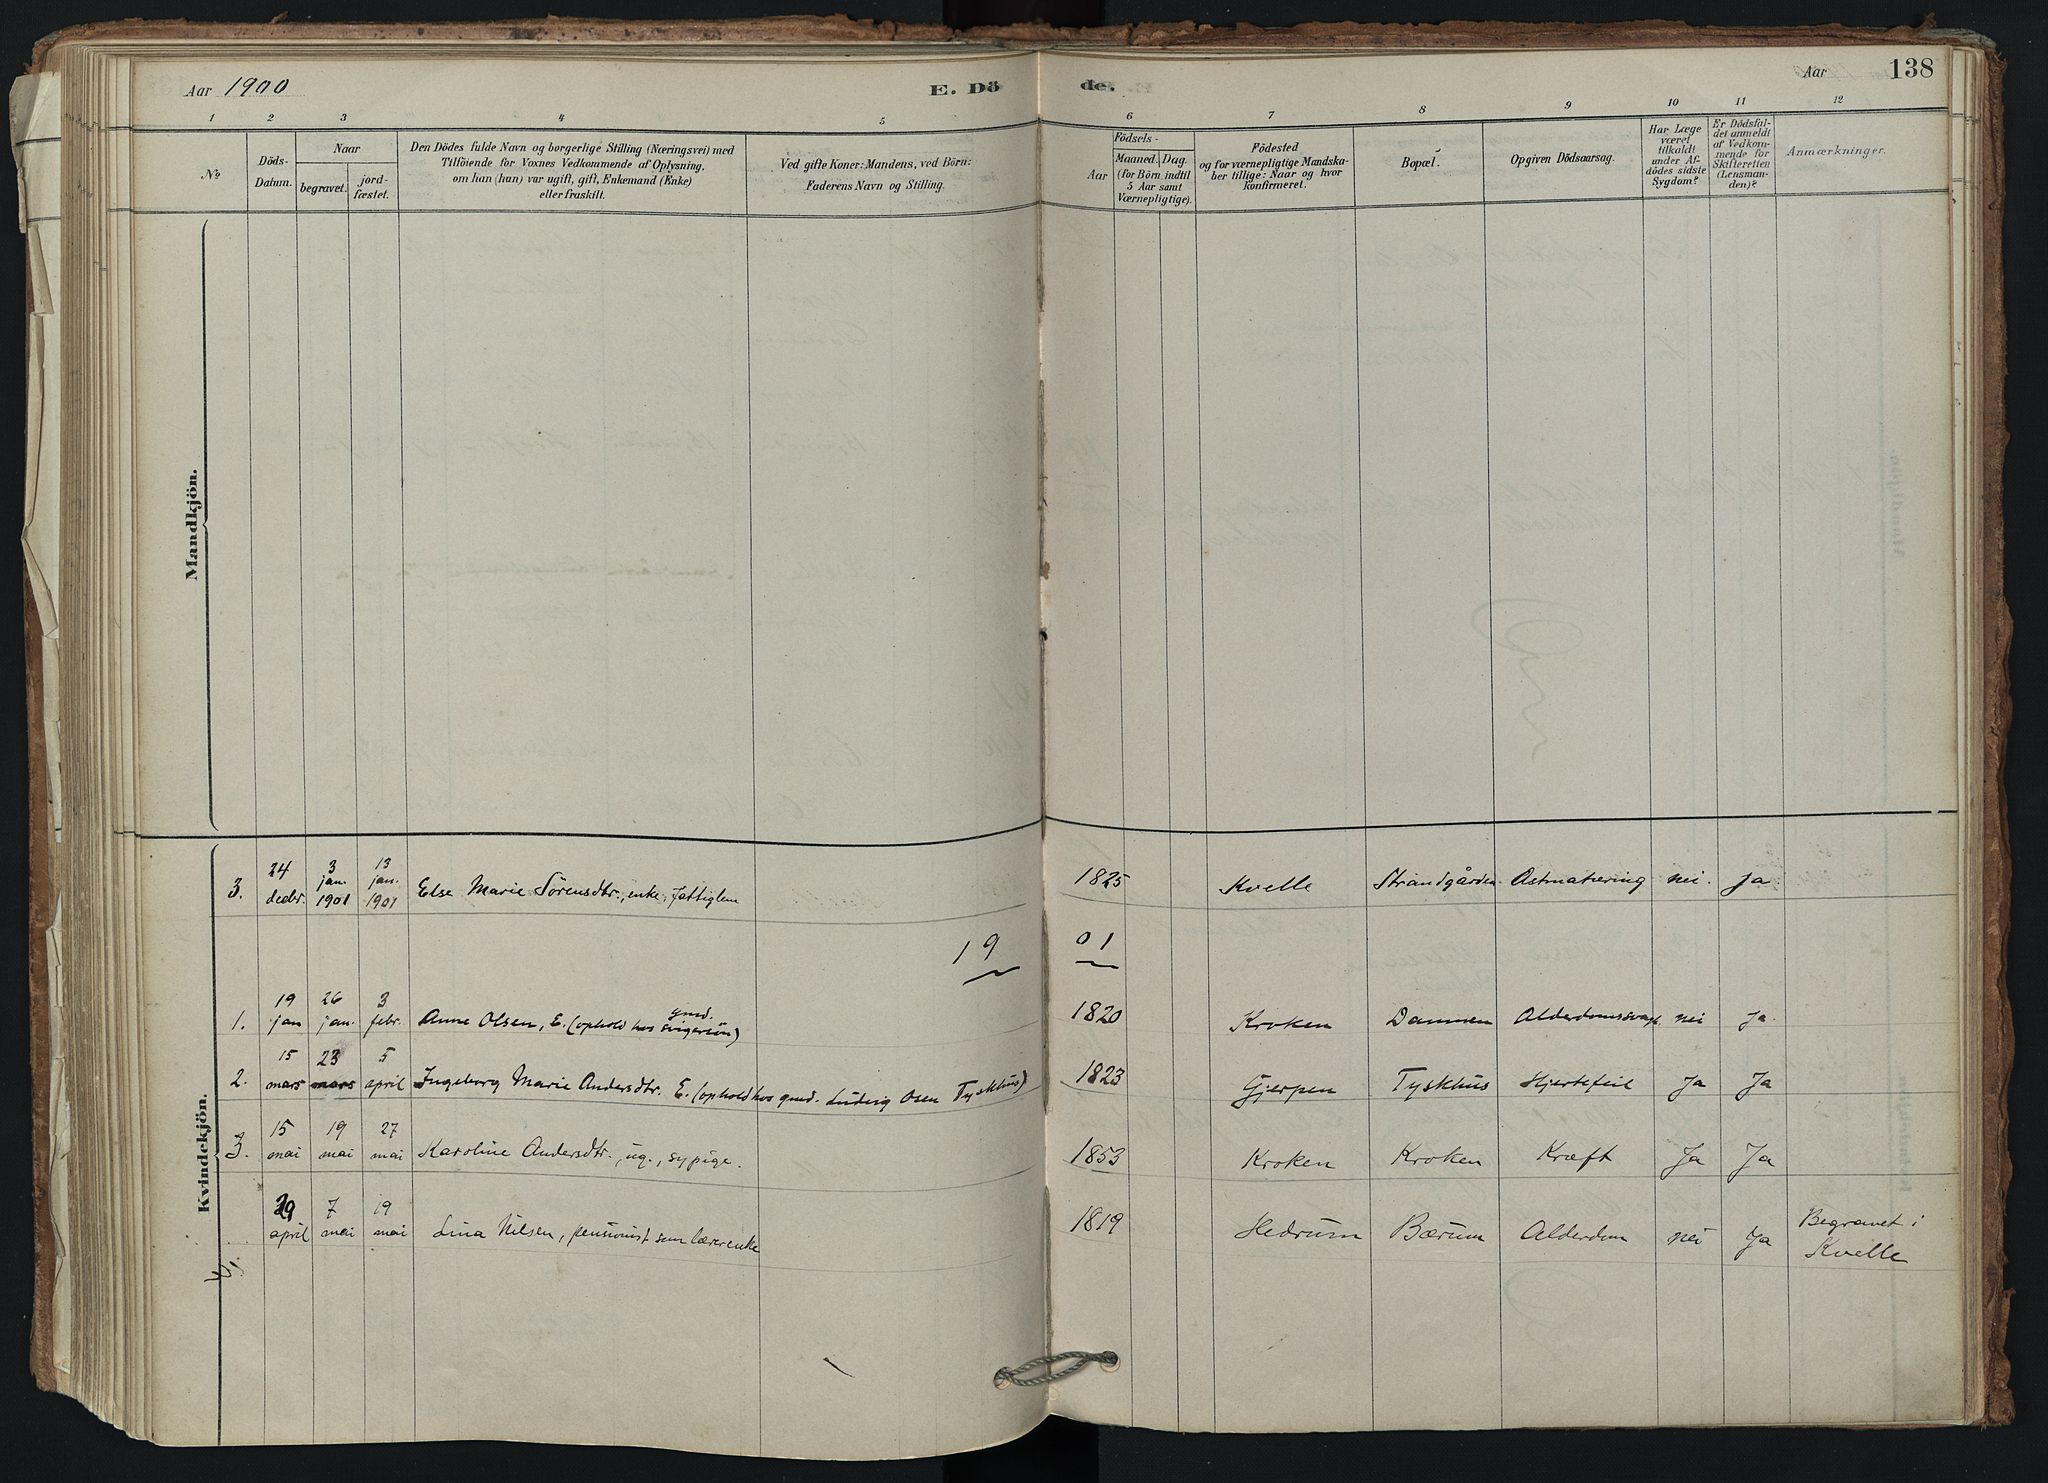 Aar 1900
E. Dö
de.
Aar
138
1 2 3 4 5 6 7 8 9 10 11 12
No
Döds-
Datum.
Naar
begravet.
jord-
fæstet.
Den Dödes fulde Navn og borgerlige Stilling (Næringsvei) med
Tilföiende for Voxnes Vedkommende af Oplysning,
om han (hun) var ugift, gift, Enkemand (Enke)
eller fraskilt.
Ved gifte Koner: Mandens, ved Börn:
Faderens Navn og Stilling.
Födsels-
Aar
Maaned. Dag.
(for Börn indtil
5 Aar samt
Værnepligtige).
Födested
og for værnepligtige Mandska-
ber tillige: Naar og hvor
konfirmeret.
Bopæl.
Opgiven Dödsaarsag.
Har Læge
været
tilkaldt
under Af-
dödes sidste
Sygdom?
Er Dödsfal-
det anmeldt
af Vedkom-
mende for
Skifteretten
(Lensman-
den)?
Anmærkninger.
Mandkjön.
Kvindekjön.
3. 24 decbr. 3 jan. 1901 13 jan. 1901 Else Marie Sörensdtr., enke, fattiglem 1825 Kvelle Strandgården Astmatæring nei. Ja.
19 01
1. 19 jan 26 jan. 3 febr. Anne Olsen, E. (ophold hos gmd. svigersön) 1820 Kroken Dammen nei Ja.
2. 15 mars 23 mars 5 april Ingeborg Marie Andersdtr. E. (ophold hos gmd. Ludvig Osen Tyskhus) 1823 Gjerpen Tyskhus Hjertefeil Ja Ja
3. 15 mai 19 mai 27 mai Karoline Andersdtr., ug., sypige. 1853 Kroken Kroken Kræft Ja Ja
29 april 7 mai 19 mai Lina Nilsen, pensionist som lærerenke 1819 Hedrum Bærum Alderdom nei Ja Begravet i
Kvelle